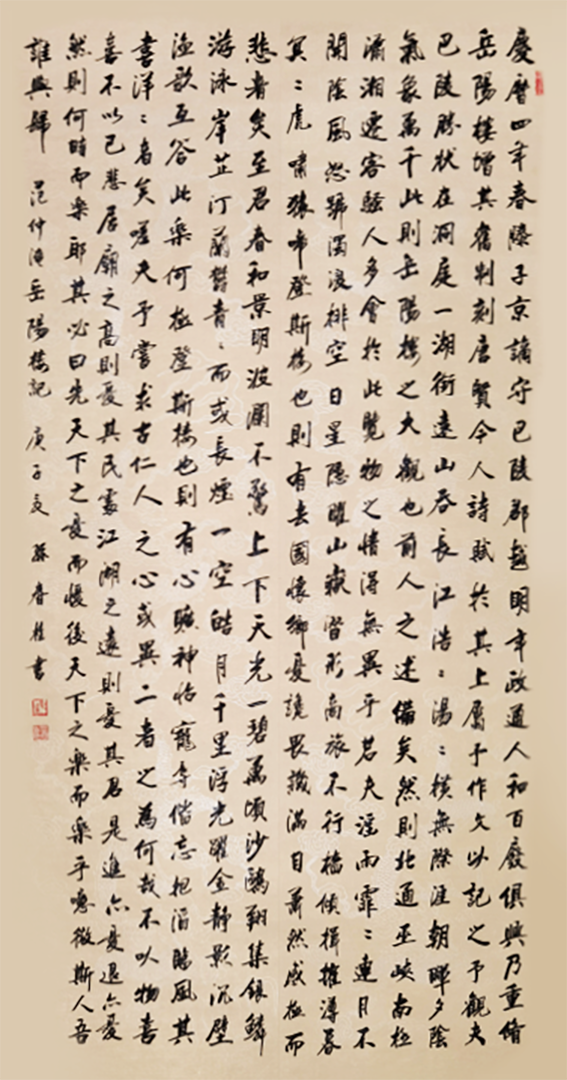 慶曆四年春滕子京謫守巴陵郡越明年政通人和百廢俱興乃重脩
岳陽樓增其舊制刻唐賢今人詩賦於其上屬予作文以記之予觀夫
巴陵勝狀在洞庭一湖銜遠山吞長江浩〻湯〻橫無際涯朝暉夕陰
氣象萬千此則岳陽樓之大觀也前人之述備矣然則北通巫峽南極
瀟湘遷客騷人多會於此覽物之情得無異乎若夫淫雨霏〻連月不
開陰風怒號濁浪排空日星隱曜山嶽潛形商旅不行檣傾楫摧薄暮
冥〻虎嘯猿啼登斯樓也則有去國懷鄉憂讒畏譏滿目蕭然感極而
悲者矣至若春和景明波瀾不驚上下天光一碧萬頃沙鷗翔集銀鱗
游泳岸芷汀蘭鬱青〻而或長煙一空皓月千里浮光躍金靜影沉璧
漁歌互答此樂何極登斯樓也則有心曠神怡寵辱偕忘把酒臨風其
喜洋〻者矣嗟夫予嘗求古仁人之心或異二者之為何哉不以物喜
喜不以己悲居廟之高則憂其民處江湖之遠則憂其君是進亦憂退亦憂
然則何時而樂耶其必曰先天下之憂而憂後天下之樂而樂乎噫微斯人吾
誰與歸 范仲淹岳陽樓記 庚子夏 孫春桂書